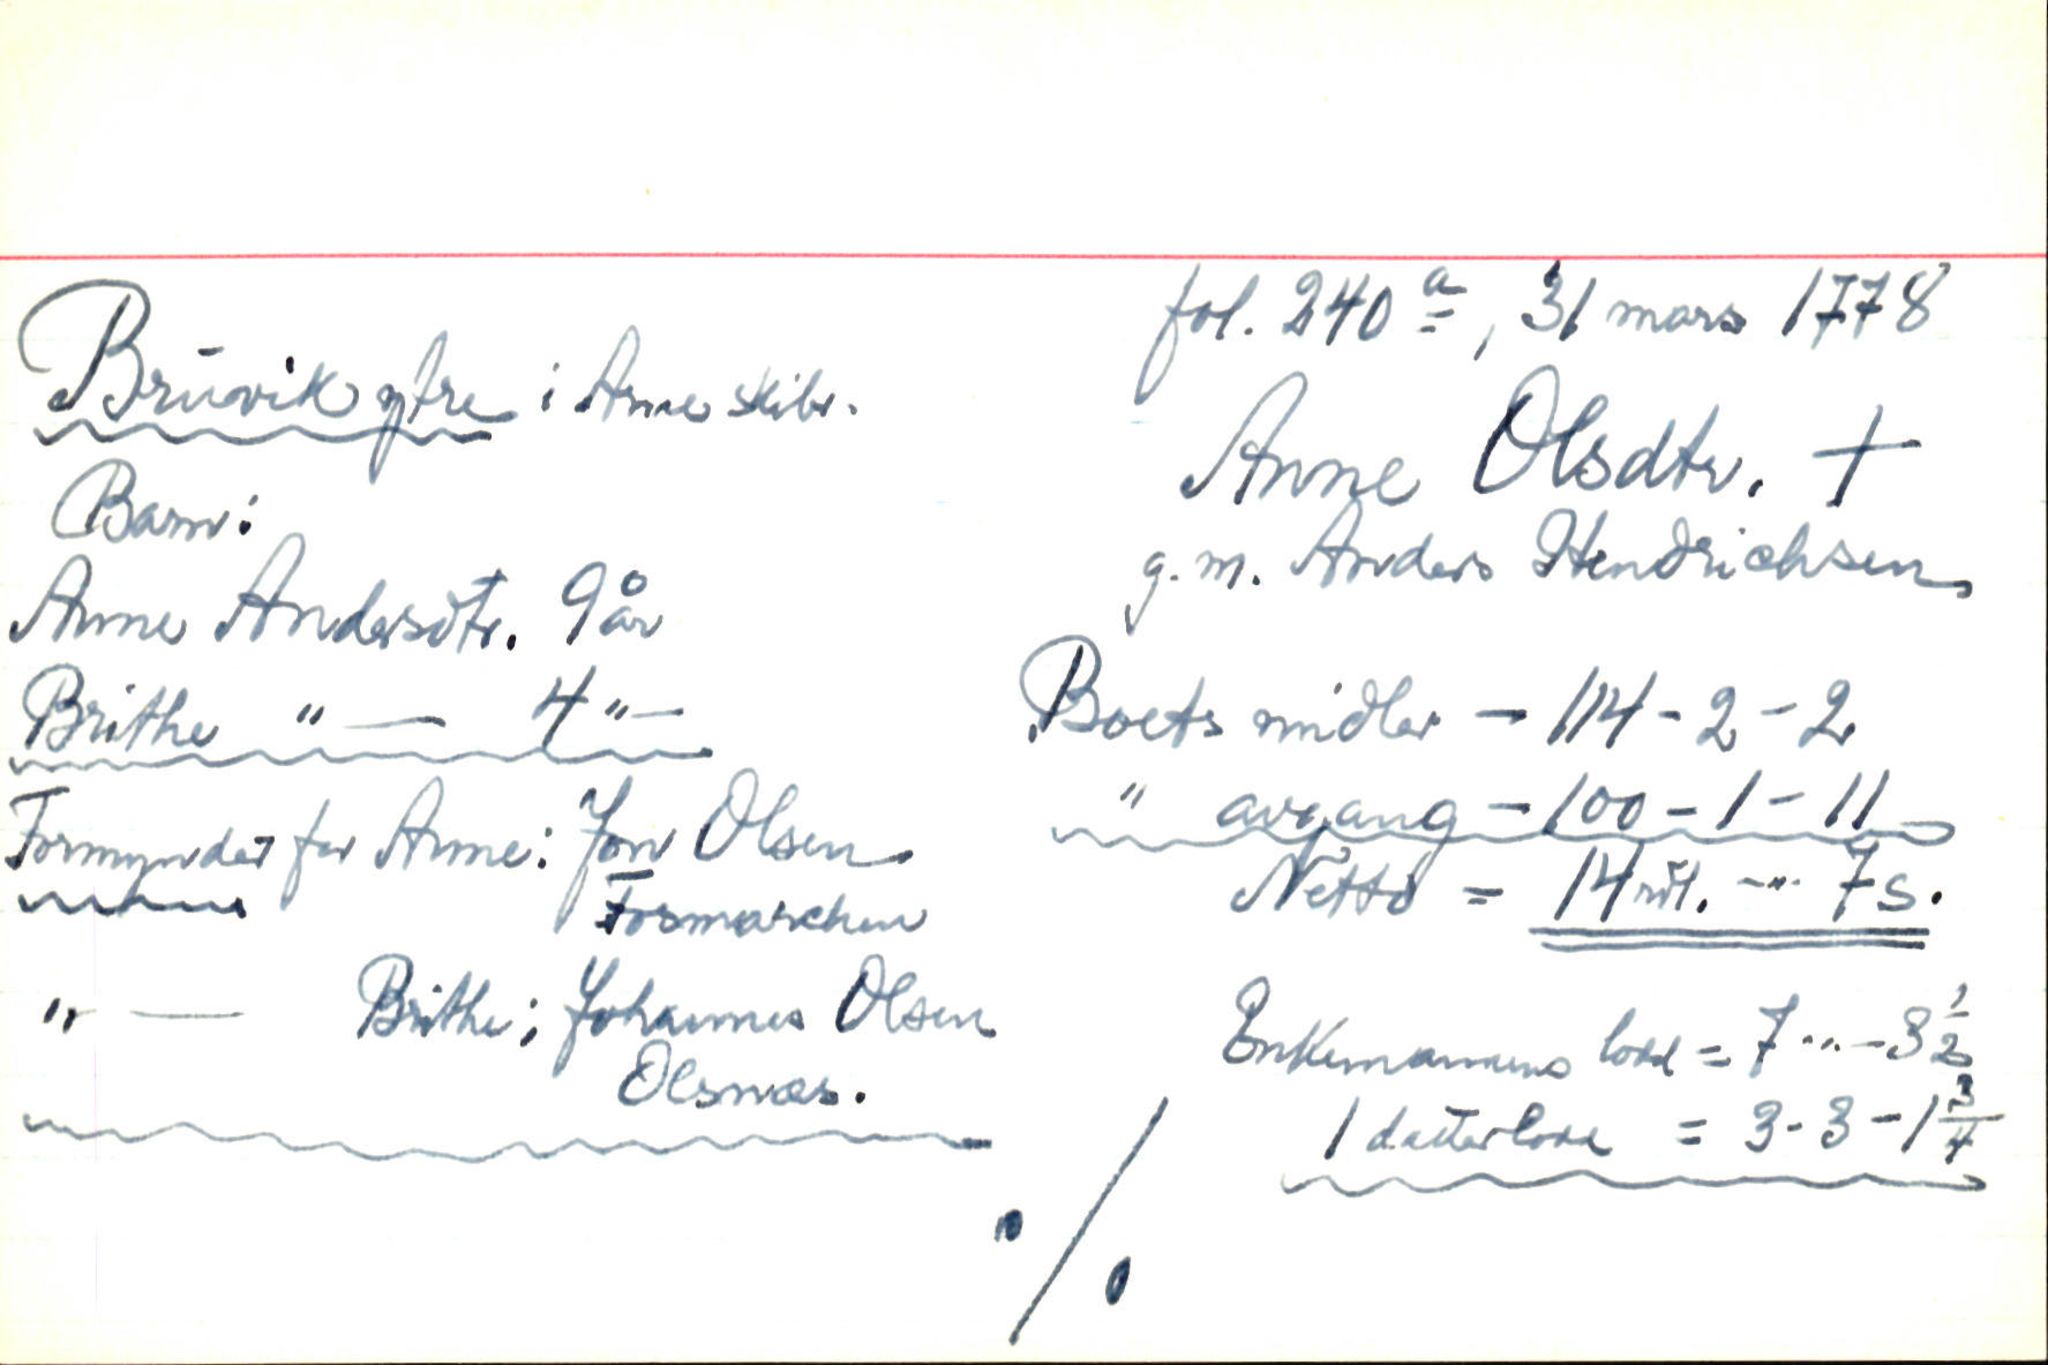 Bruvik ytre i Arne skibr.
Barn:
Anne Andersdtr. 9 år
Brithe "— 4 "—
Formynder for Anne: Jon Olsen
Fosmarchen
"— Brithe; Johannes Olsen
Olsnæs.
fol. 240 a, 31 mars 1778
Anne Olsdtr. †
g. m. Anders Hendrichsen
Boets midler – 114 - 2 - 2
" avgang – 100 - 1 - 11
Netto = 14 rdl. -"- 7 s.
Enkemannens lodd = 7 -"- 3 1/2
1 datterlodd = 3 - 3 - 1 3/4
./.